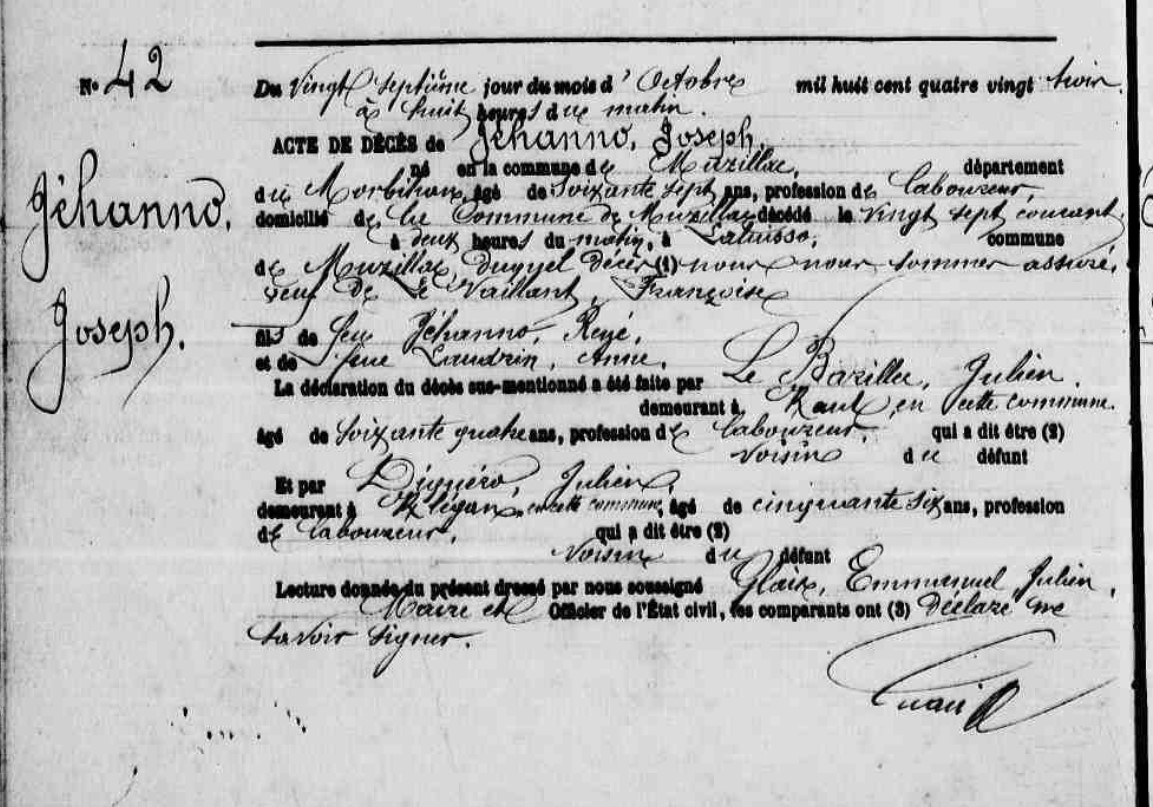 N° 42
Du Vingt septième jour du mois d'Octobre mil huit cent quatre vingt trois.
à huit heures du matin.
ACTE DE DÉCÈS de Jéhanno, Joseph,
né en la commune de Muzillac, département
du Morbihan, âgé de soixante sept ans, profession de laboureur,
Jéhanno, domicilié de la Commune de Muzillac décédé le vingt sept courant,
à deux heures du matin, à commune
de Muzillac, duquel décès (1) nous nous sommes assuré,
veuf de Le Vaillant, Françoise
Joseph. fils de feu Jéhanno, René,
et de feue Laudrin, Anne.
La déclaration du décès sus-mentionné a été faite par Le Barillec, Julien,
demeurant à en cette commune.
âgé de soixante quatre ans, profession de laboureur, qui a dit être (2)
voisin du défunt
Et par Diguéro, Julien,
demeurant à en cette commune, âgé de cinquante six ans, profession
de laboureur, qui a dit être (2)
voisin du défunt
Lecture donnée du présent dressé par nous soussigné Glais, Emmanuel Julien,
Maire et Officier de l'État civil, les comparants ont (3) déclaré ne
savoir signer.